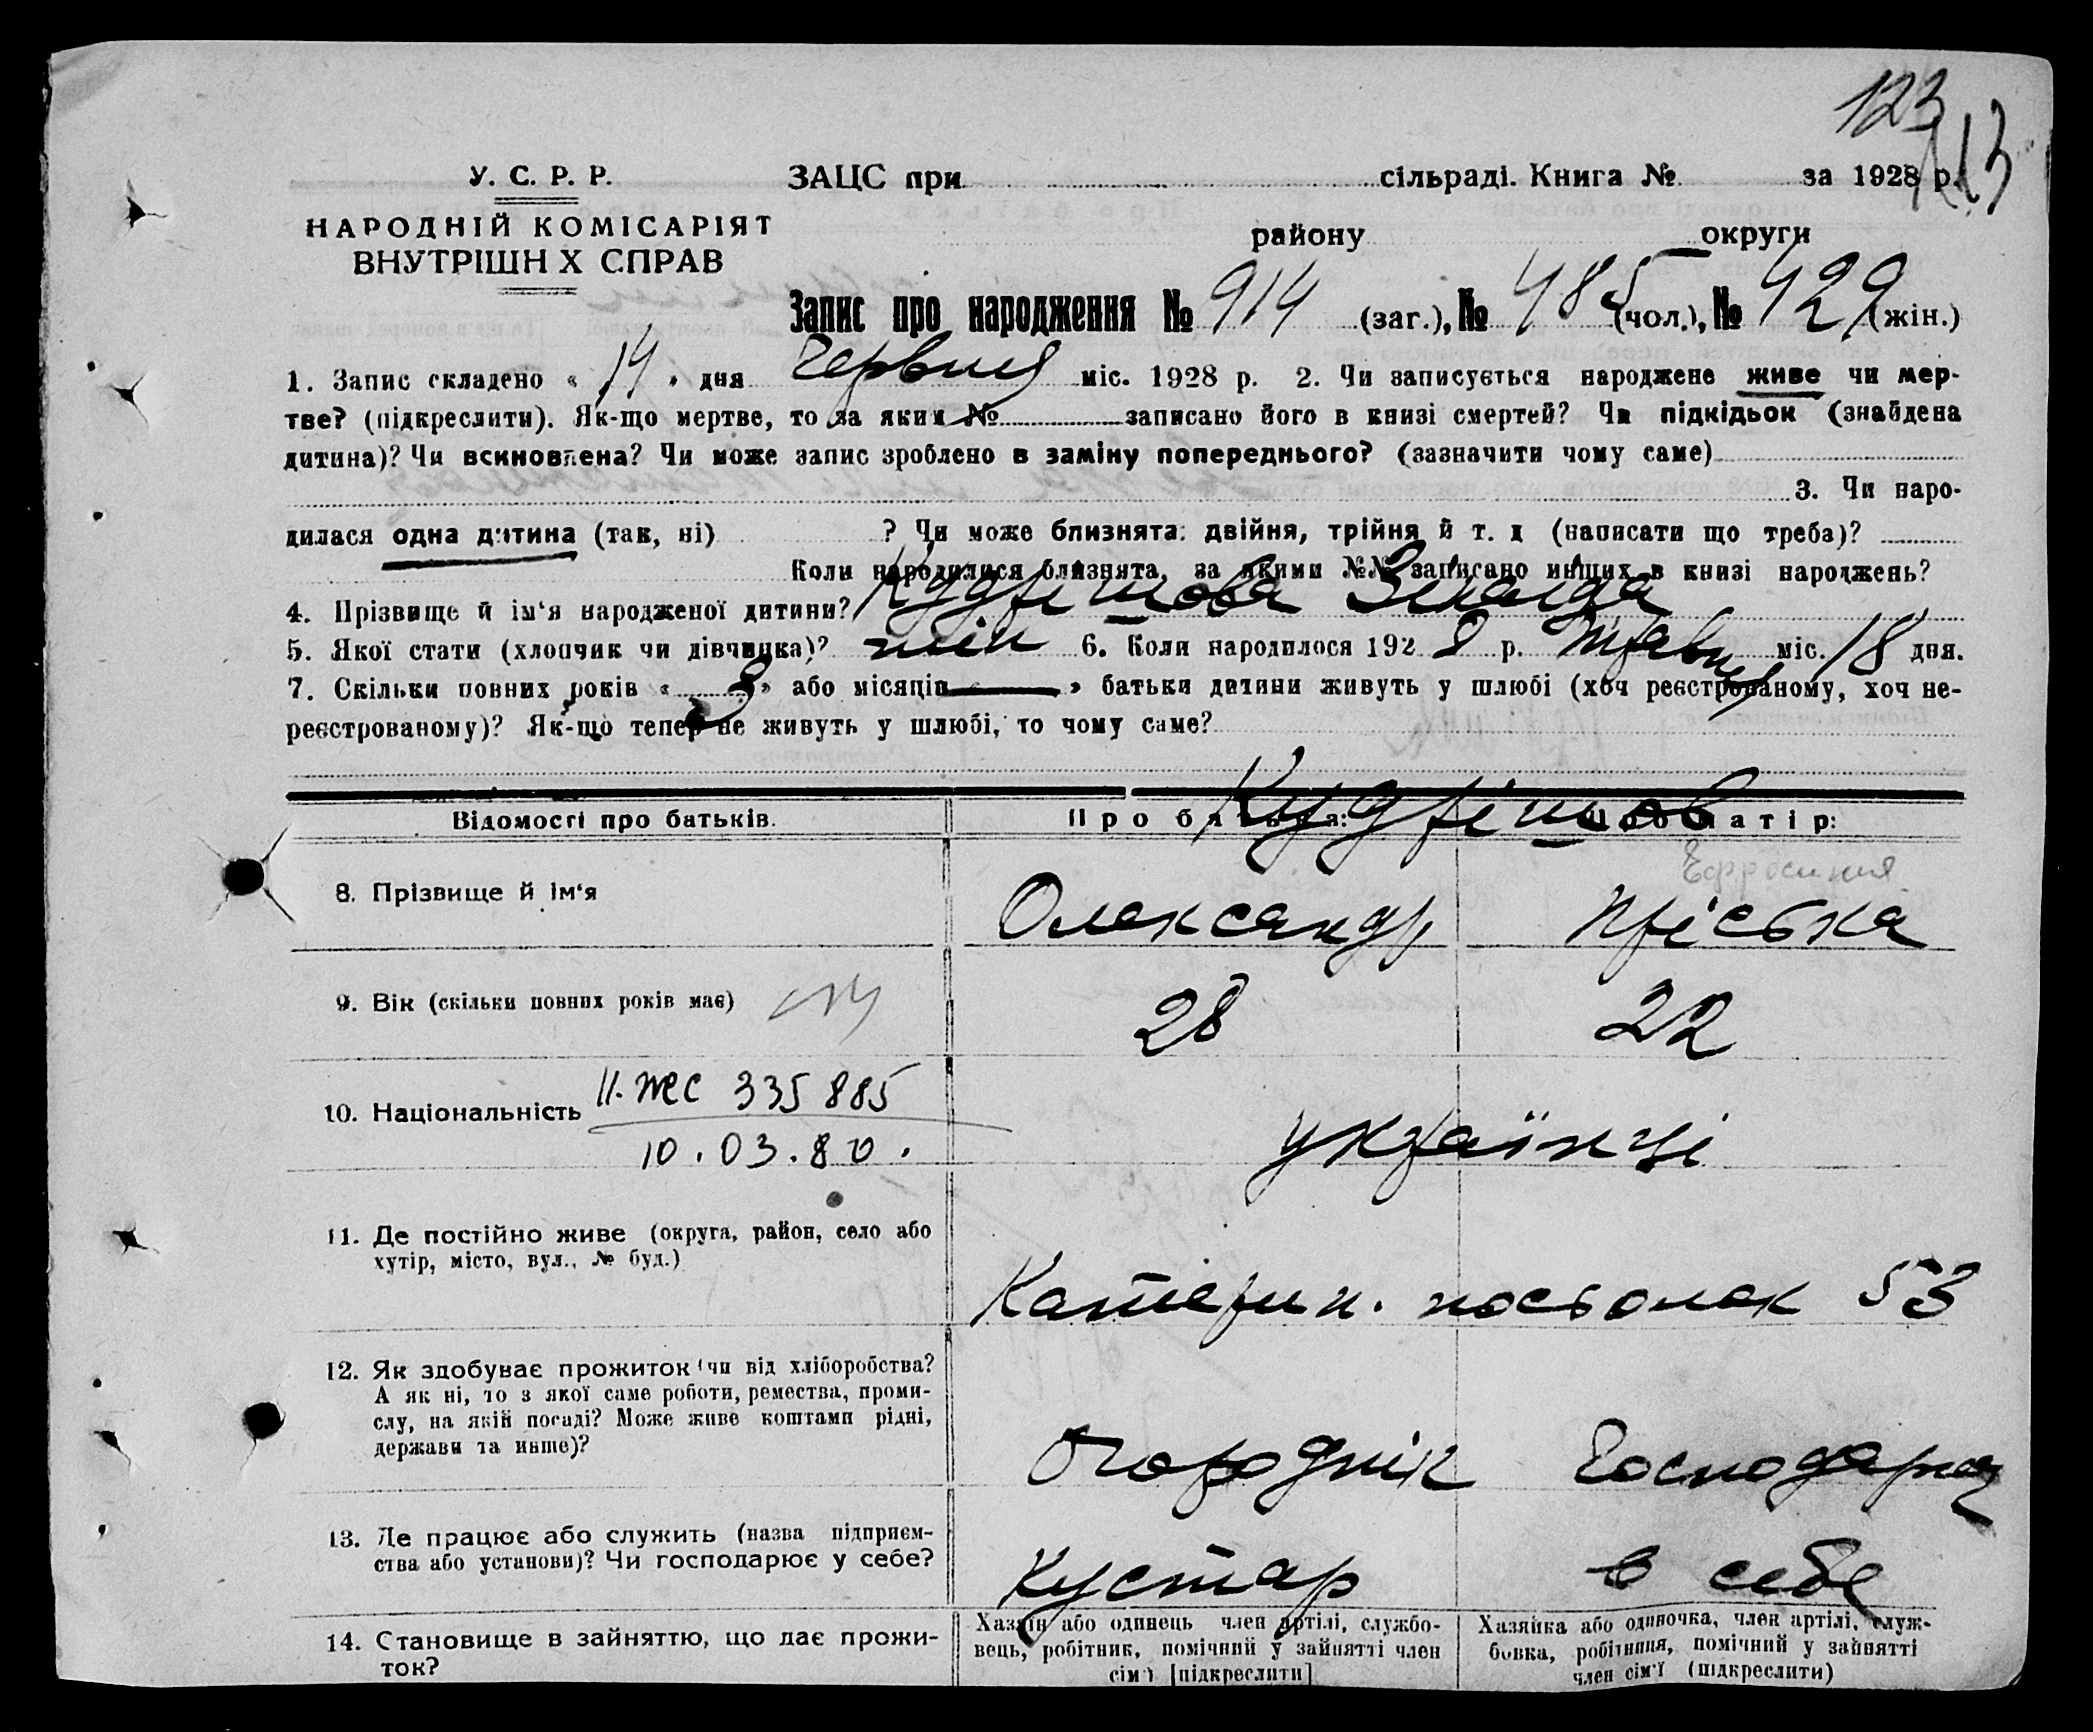 123
113
У. С. Р. Р.
НАРОДНІЙ КОМІСАРІЯТ
ВНУТРІШН Х СПРАВ
ЗАЦС при сільраді. Книга № за 1928 р.
району округи
Запис про народження № 914 (заг.), № 485 (чол.), № 429 (жін.)
1. Запис складено « 14 » дня Червня міс. 1928 р. 2. Чи записується народжене живе чи мер-
тве? (підкреслити). Як-що мертве, то за яким № записано його в книзі смертей? Чи підкідьок (знайдена
дитина)? Чи всиновлена? Чи може запис зроблено в заміну попереднього? (зазначити чому саме)
3. Чи наро-
дилася одна дитина (так, ні) ? Чи може близнята: двійня, трійня й т. д (написати що треба)?
Коли народилися близнята, за якими №№ записано инших в книзі народжень?
4. Прізвище й ім‘я народженої дитини? Кудрешова Зінаїда
5. Якої стати (хлопчик чи дівчинка)? жін 6. Коли народилося 1928 р. Травня міс. 18 дня.
7. Скільки повних років « 3 » або місяців « — » батьки дитини живуть у шлюбі (хоч реєстрованому, хоч не-
реєстрованому)? Як-що тепер не живуть у шлюбі, то чому саме?
Відомості про батьків. Про батька: Про матір:
Кудрешов
8. Прізвище й ім‘я Олександр Пріська
Ефросиния
9. Вік (скільки повних років має) 28 22
10. Національність українці
II-ЖС 335885
10.03.80.
11. Де постійно живе (округа, район, село або
хутір, місто, вул., № буд.)
Катерин. посьолок 53
12. Як здобуває прожиток (чи від хліборобства?
А як ні, то з якої саме роботи, ремества, проми-
слу, на якій посаді? Може живе коштами рідні,
держави та инше)?
Огороднік Господарка
13. Де працює або служить (назва підприєм-
ства або установи)? Чи господарює у себе?
Кустар в себе
14. Становище в зайняттю, що дає прожи-
ток?
Хазяїн або одинець член артілі, службо-
вець, робітник, помічний у зайнятті член
сім'ї [підкреслити]
Хазяйка або одиночка, член артілі, служ-
бовка, робітниця, помічний у зайнятті
член сім'ї (підкреслити)